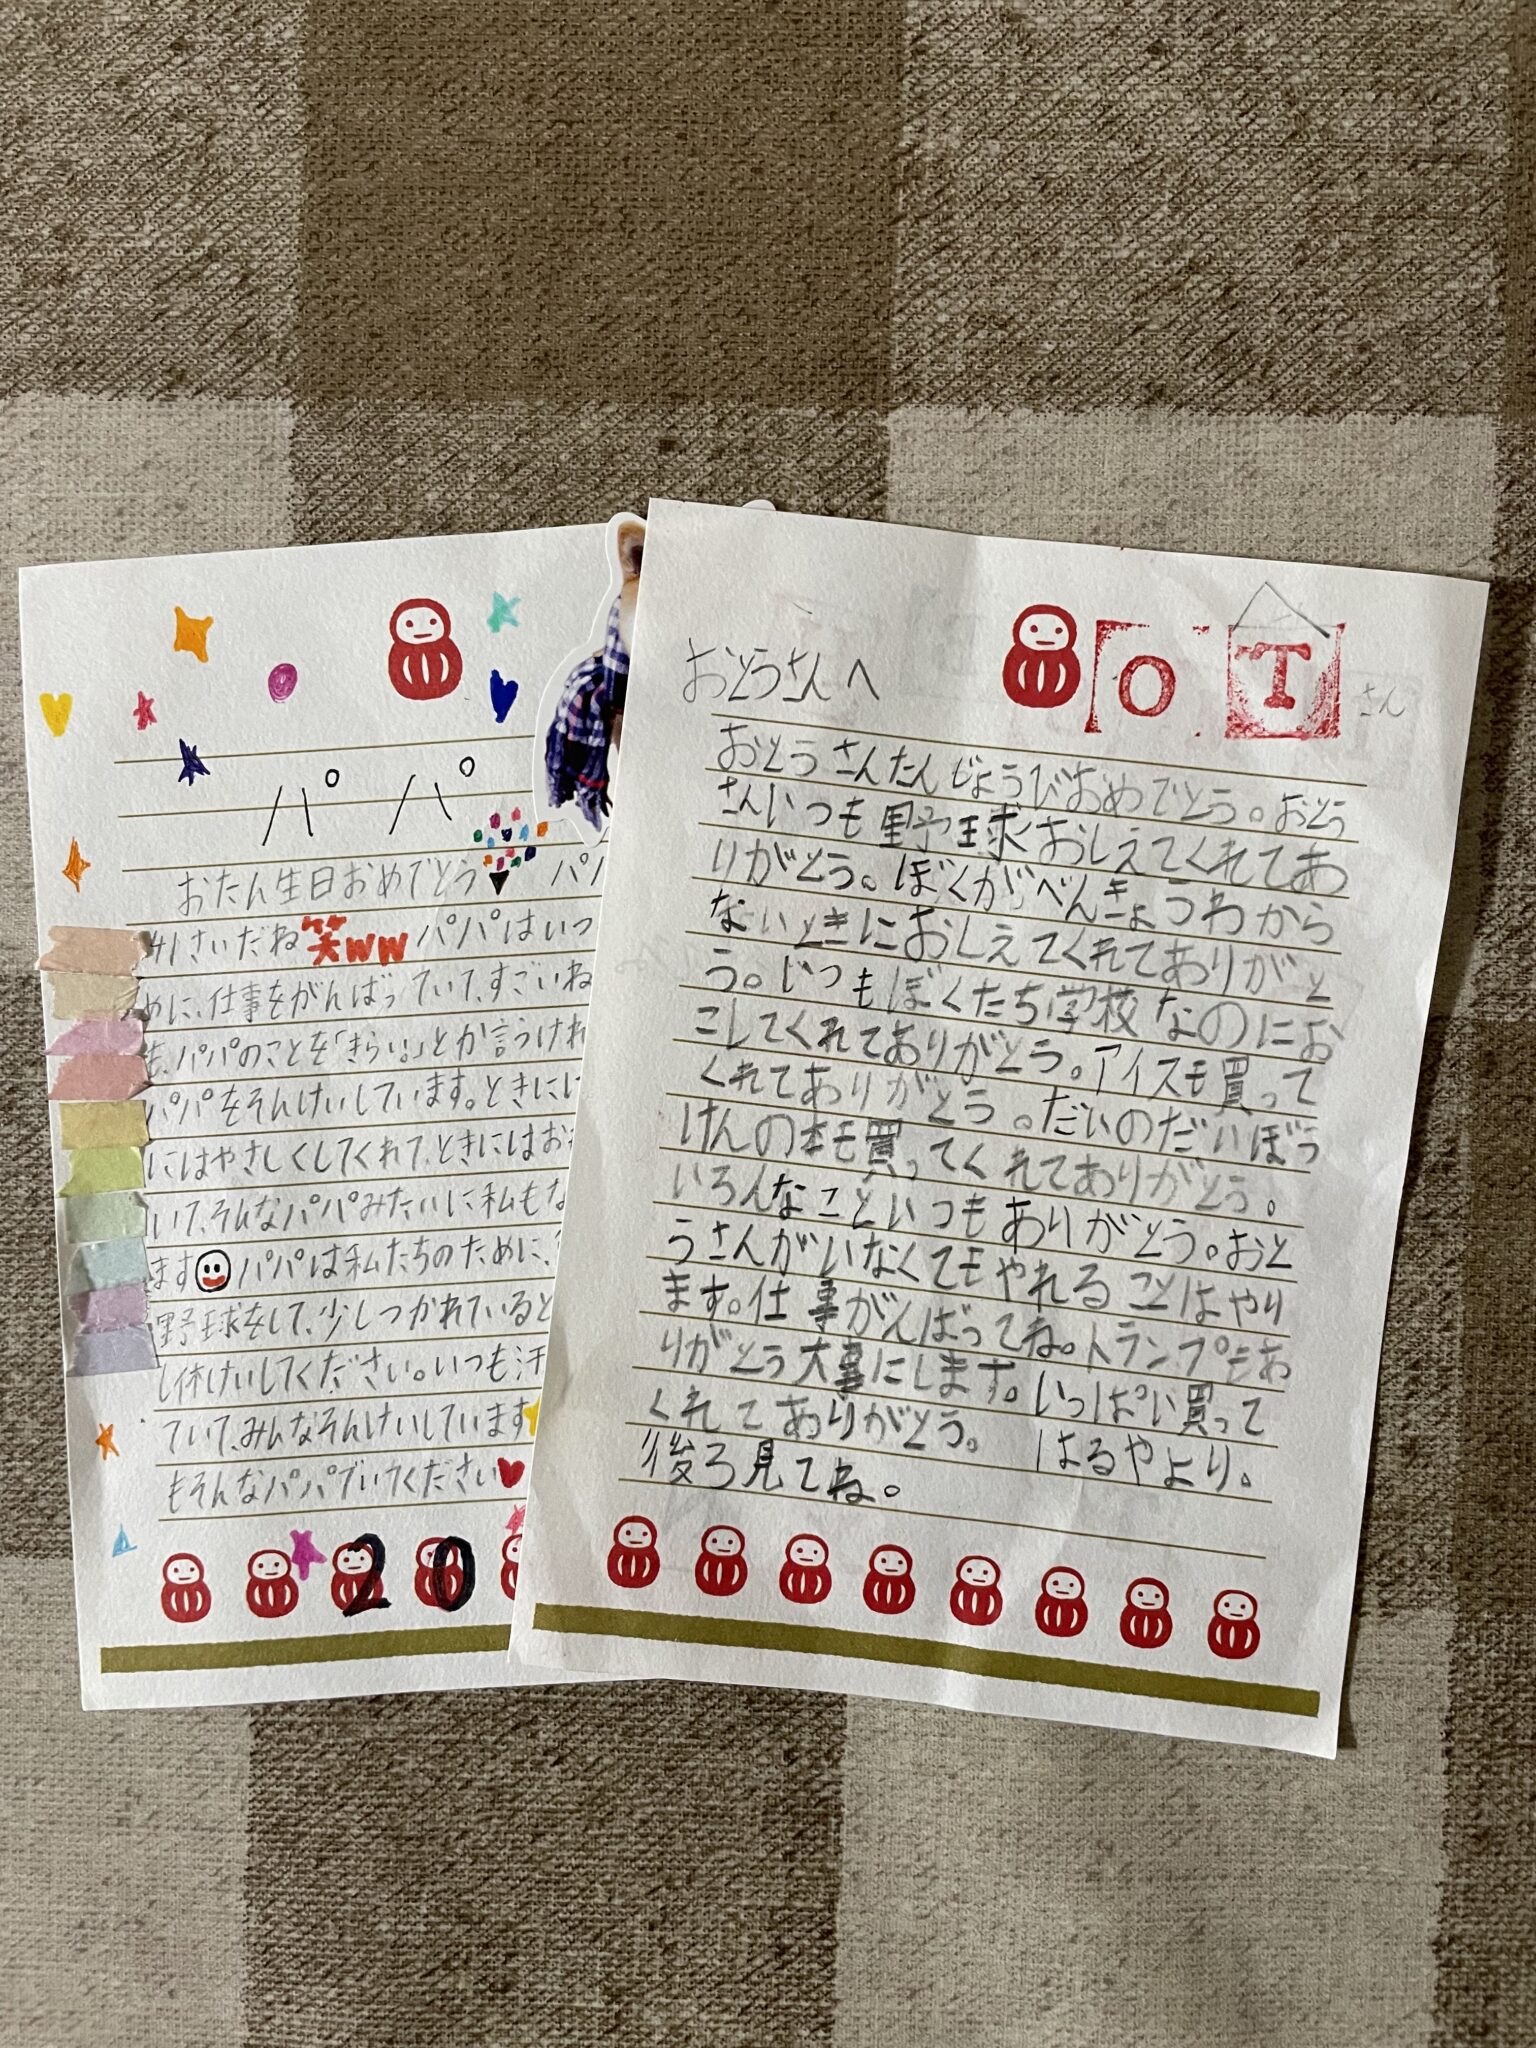 パパ
おたん生日おめでとう パパ
みじさいだね笑ww パパはいつ
めに、仕事をがんばっていて、すごいね
も、パパのことを「きらい!」とか言うけれ
パパをそんけいしています。ときに
にはやさしくしてくれて、ときにはお
いて、そんなパパみたいに私もな
ます パパは私たちのために、
野球をして、少しつかれていると
し休けいしてください。いつも汗
ていて、みんなそんけいしています
もそんなパパでいてください
20
おとうさんへ
O T さん
おとうさんたんじょうびおめでとう。おとう
さんいつも野球おしえてくれてあ
りがとう。ぼくがべんきょうわから
ないときにおしえてくれてありがと
う。いつもぼくたち学校なのにお
こしてくれてありがとう。アイスも買って
くれてありがとう。だいのだいぼう
けんの本も買ってくれてありがとう。
いろんなこといつもありがとう。おと
うさんがいなくてもやれることはやり
ます。仕事がんばってね。トランプもあ
りがとう大事にします。いっぱい買って
くれてありがとう。 はるやより。
後ろ見てね。